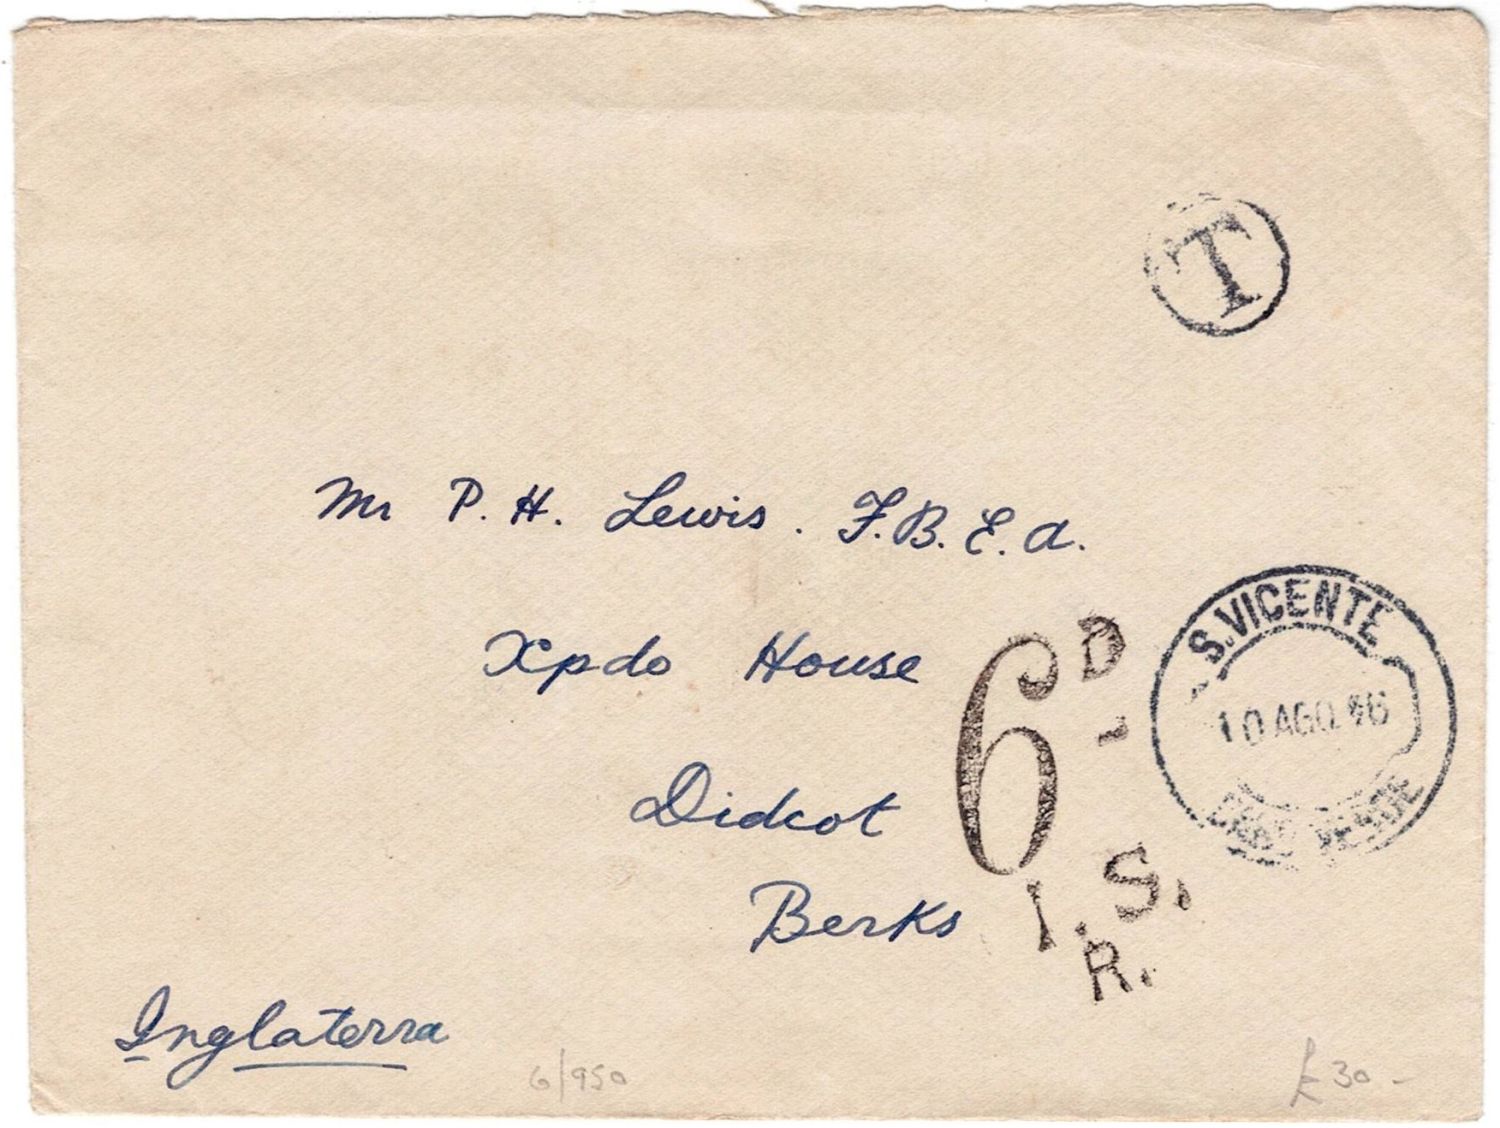 T
Mr P. H. Lewis. F.B.E.A.
Xpdo House
Didcot
Berks
Inglaterra
6D
I.S.
R.
S.VICENTE
10 AGO
CABO VERDE
6/950
£30-